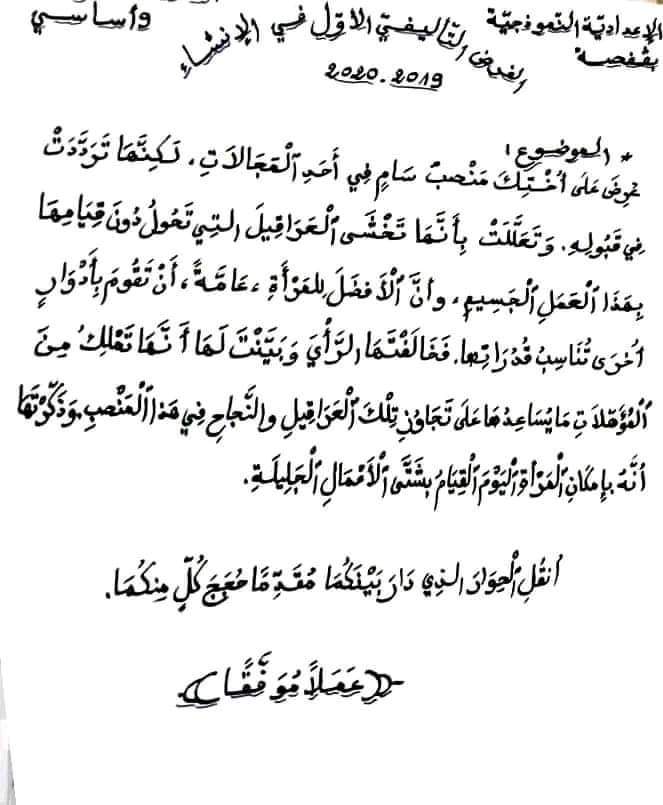 الإعداديّة النّموذجيّة
بقفصة
الفرض التّأليفيّ الأوّل في الإنشاء
و أساسي
2020.2019
* الموضوع:
عُرِضَ عَلَى أُخْتِكَ مَنْصِبٌ سَامٍ فِي أَحَدِ ٱلْمَجَالَاتِ، لَكِنَّهَا تَرَدَّدَتْ
فِي قَبُولِهِ. وَتَعَلَّلَتْ بِأَنَّهَا تَخْشَى ٱلْعَرَاقِيلَ الـتِي تَحُولُ دُونَ قِيَامِهَا
بِهَذَا ٱلْعَمَلِ ٱلْجَسِيمِ، وأنَّ ٱلْأَفْضَلَ لِلمَرْأَةِ، عَامَّةً، أَنْ تَقُومَ بِأَدْوَارٍ
أُخْرَى تُنَاسِبُ قُدُرَاتِهَا. فَخَالَفْتَهَا الرَّأْيَ وَبَيَّنْتَ لَهَا أَنَّهَا تَمْلِكُ مِنَ
ٱلْمُؤَهِّلَاتِ مَا يُسَاعِدُهَا عَلَى تَجَاوُزِ تِلْكَ ٱلْعَرَاقِيلِ والنَّجَاحِ فِي هَذَا ٱلْمَنْصِبِ. وَذَكَّرْتَهَا
أَنَّهُ بِإِمْكَانِ ٱلْمَرْأَةِ ٱلْيَوْمَ ٱلْقِيَامُ بِشَتَّى ٱلْأَعْمَالِ ٱلْجَلِيلَةِ.
اُنْقُلِ ٱلْحِوَارَ الـذِي دَارَ بَيْنَكُمَا مُقَدِّمًا حُجَجَ كُلٍّ مِنكُمَا.
عَمَلاً مُوَفَّقًا